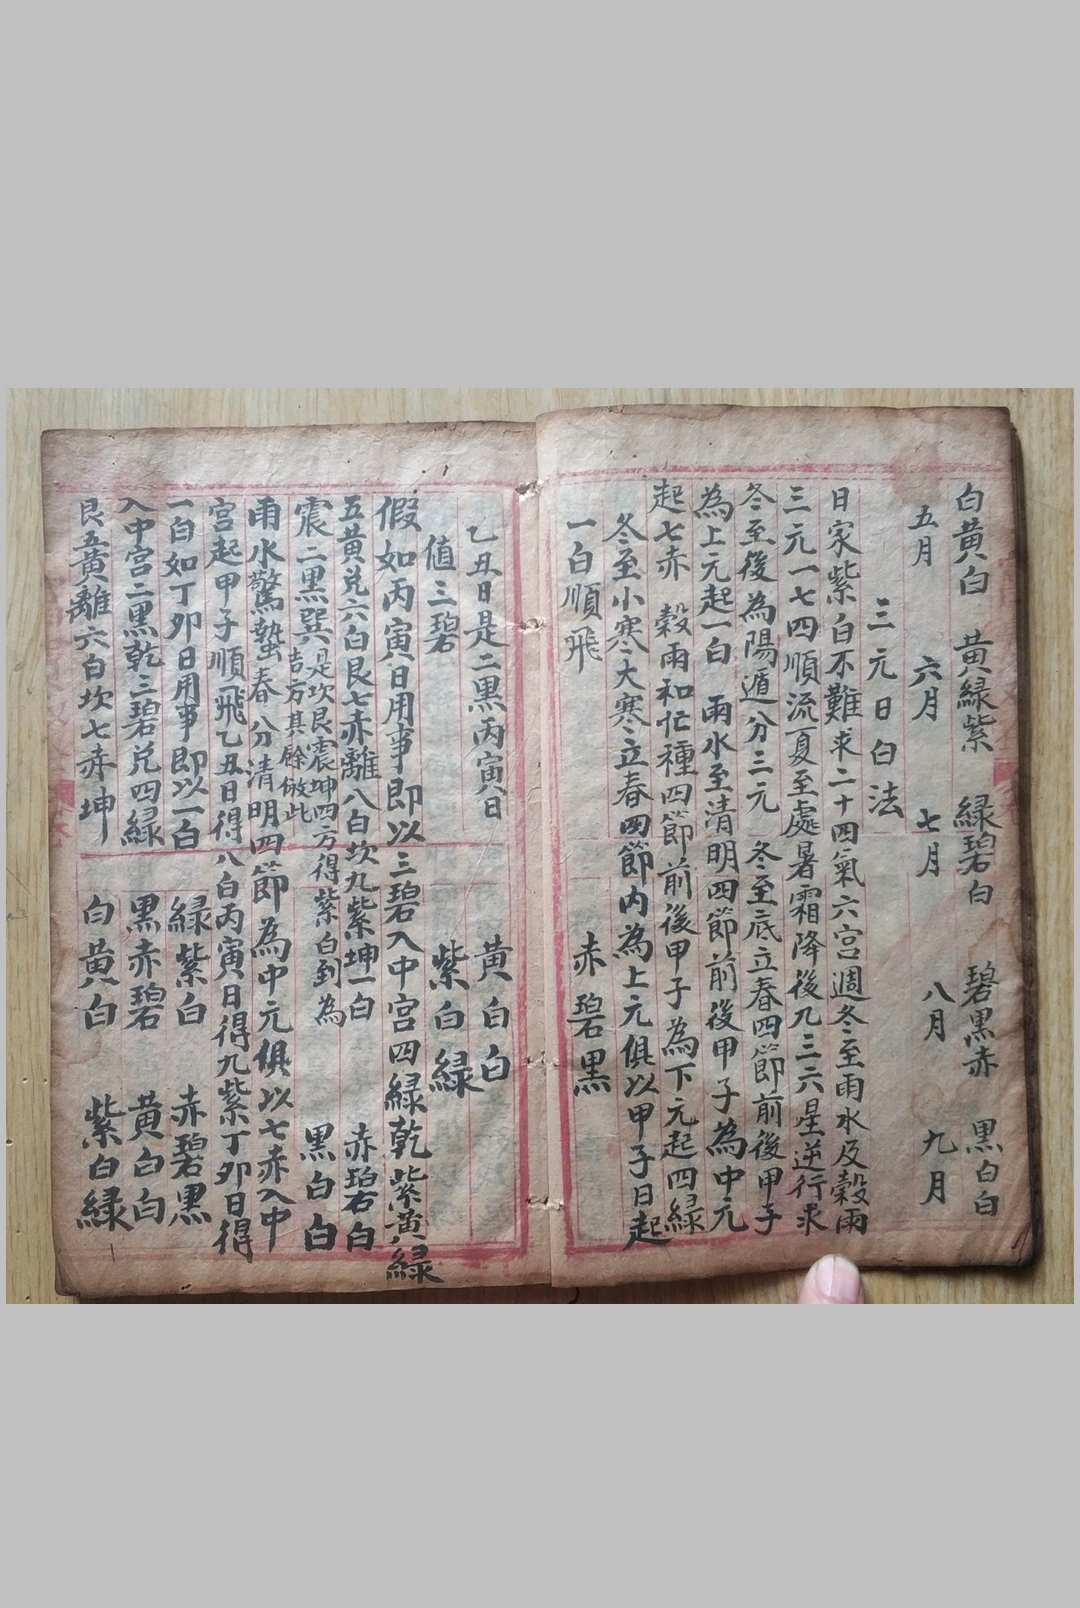 白黄白　黄緑紫　緑碧白　碧黒赤　黒白白
五月　六月　七月　八月　九月
三元日白法
日家紫白不難求二十四氣六宮週冬至雨水及穀雨
三元一七四順流夏至處暑霜降後九三六星逆行求
冬至後為陽遁分三元　冬至底立春四節前後甲子
為上元起一白　雨水至清明四節前後甲子為中元
起七赤　穀雨和忙種四節前後甲子為下元起四緑
冬至小寒大寒立春四節内為上元俱以甲子日起
一白順飛　赤碧黒
乙丑日是二黒丙寅日　黄白白
值三碧　紫白緑
假如丙寅日用事即以三碧入中宮四緑乾　紫黄緑
五黄兑六白艮七赤離八白坎九紫坤一白　赤碧白
震二黒巽是坎艮震坤四方得紫白到為吉方其餘倣此　黒白白
雨水驚蟄春分清明四節為中元俱以七赤入中
宮起甲子順飛乙丑日得八白丙寅日得九紫丁夘日得
一白如丁夘日用事即以一白　緑紫白　赤碧黒
入中宮二黒乾三碧兑四緑　黒赤碧　黄白白
艮五黄離六白坎七赤坤　白黄白　紫白緑